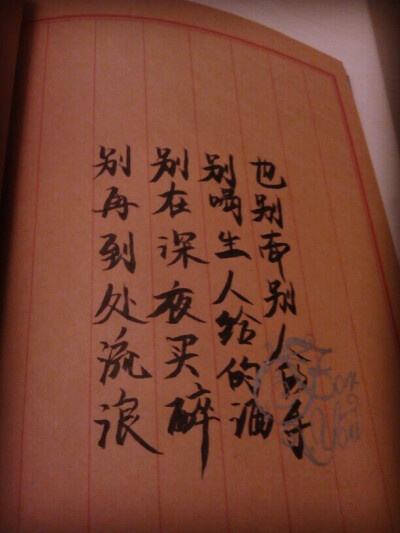 别再到处流浪
别在深夜买醉
别喝生人给的酒
也别牵别人的手
For
You